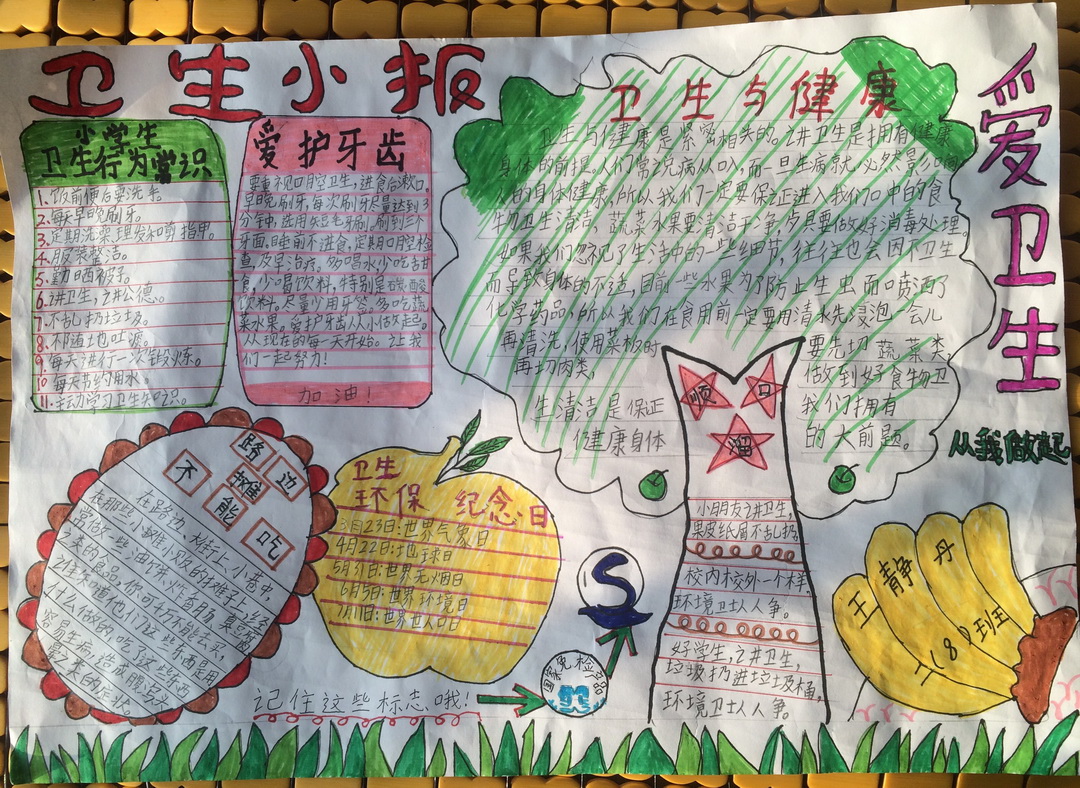 卫生小报
小学生
卫生行为常识
1.饭前便后要洗手。
2.每天早晚刷牙。
3.定期洗澡,理发和剪指甲。
4.服装整洁。
5.勤晒被子。
6.讲卫生,讲公德。
7.不乱扔垃圾。
8.不随地吐痰。
9.每天进行一次锻炼。
10.每天节约用水。
11.主动学习卫生知识。
爱护牙齿
要重视口腔卫生,进食后漱口。
早晚刷牙,每次刷牙尽量达到3
分钟,选用短毛牙刷,刷到三个
牙面,睡前不进食,定期口腔检
查,及早治疗。多喝水少吃甜
食,少喝饮料,特别是碳酸
饮料。尽量少用牙签,多吃蔬
菜水果。爱护牙齿从小做起。
从现在的每一天开始。让我
们一起努力!
加油!
卫生与健康
卫生与健康是紧密相关的。讲卫生是拥有健康
身体的前提。人们常说病从口入,而一旦生病就必然影响
人的身体健康,所以我们一定要保证进入我们口中的食
物卫生清洁。蔬菜水果要清洁干净,炊具要做好消毒处理。
如果我们忽视了生活中的一些细节,往往也会因不卫生
而导致身体的不适,目前一些水果为了防止生虫而喷洒了
化学药品,所以我们在食用前一定要用清水先浸泡一会儿
再清洗,使用菜板时 要先切蔬菜类,
再切肉类, 做到好食物卫
生清洁是保证 我们拥有
健康身体 的大前题。
爱卫生
从我做起
路边
摊
不能吃
在路边、大街上、小巷中,
在那些小摊小贩的在摊子上,经
常做一些油炸、火香肠、臭豆腐
之类的食品。你可千万不能去买,
什么做的,吃了这些东西
容易生病,造成腹泻头
晕之类的症状。
卫生
环保 纪念日
3月23日:世界气象日
4月22日:地球日
5月31日:世界无烟日
6月5日:世界环境日
7月11日:世界人口日
记住这些标志哦!
S
国家免检产品
顺口
溜
小朋友讲卫生,
果皮纸屑不乱扔
校内校外一个样,
环境卫士人人争。
好学生,讲卫生,
垃圾扔进垃圾桶,
环境卫士人人争。
王静丹
一(8)班